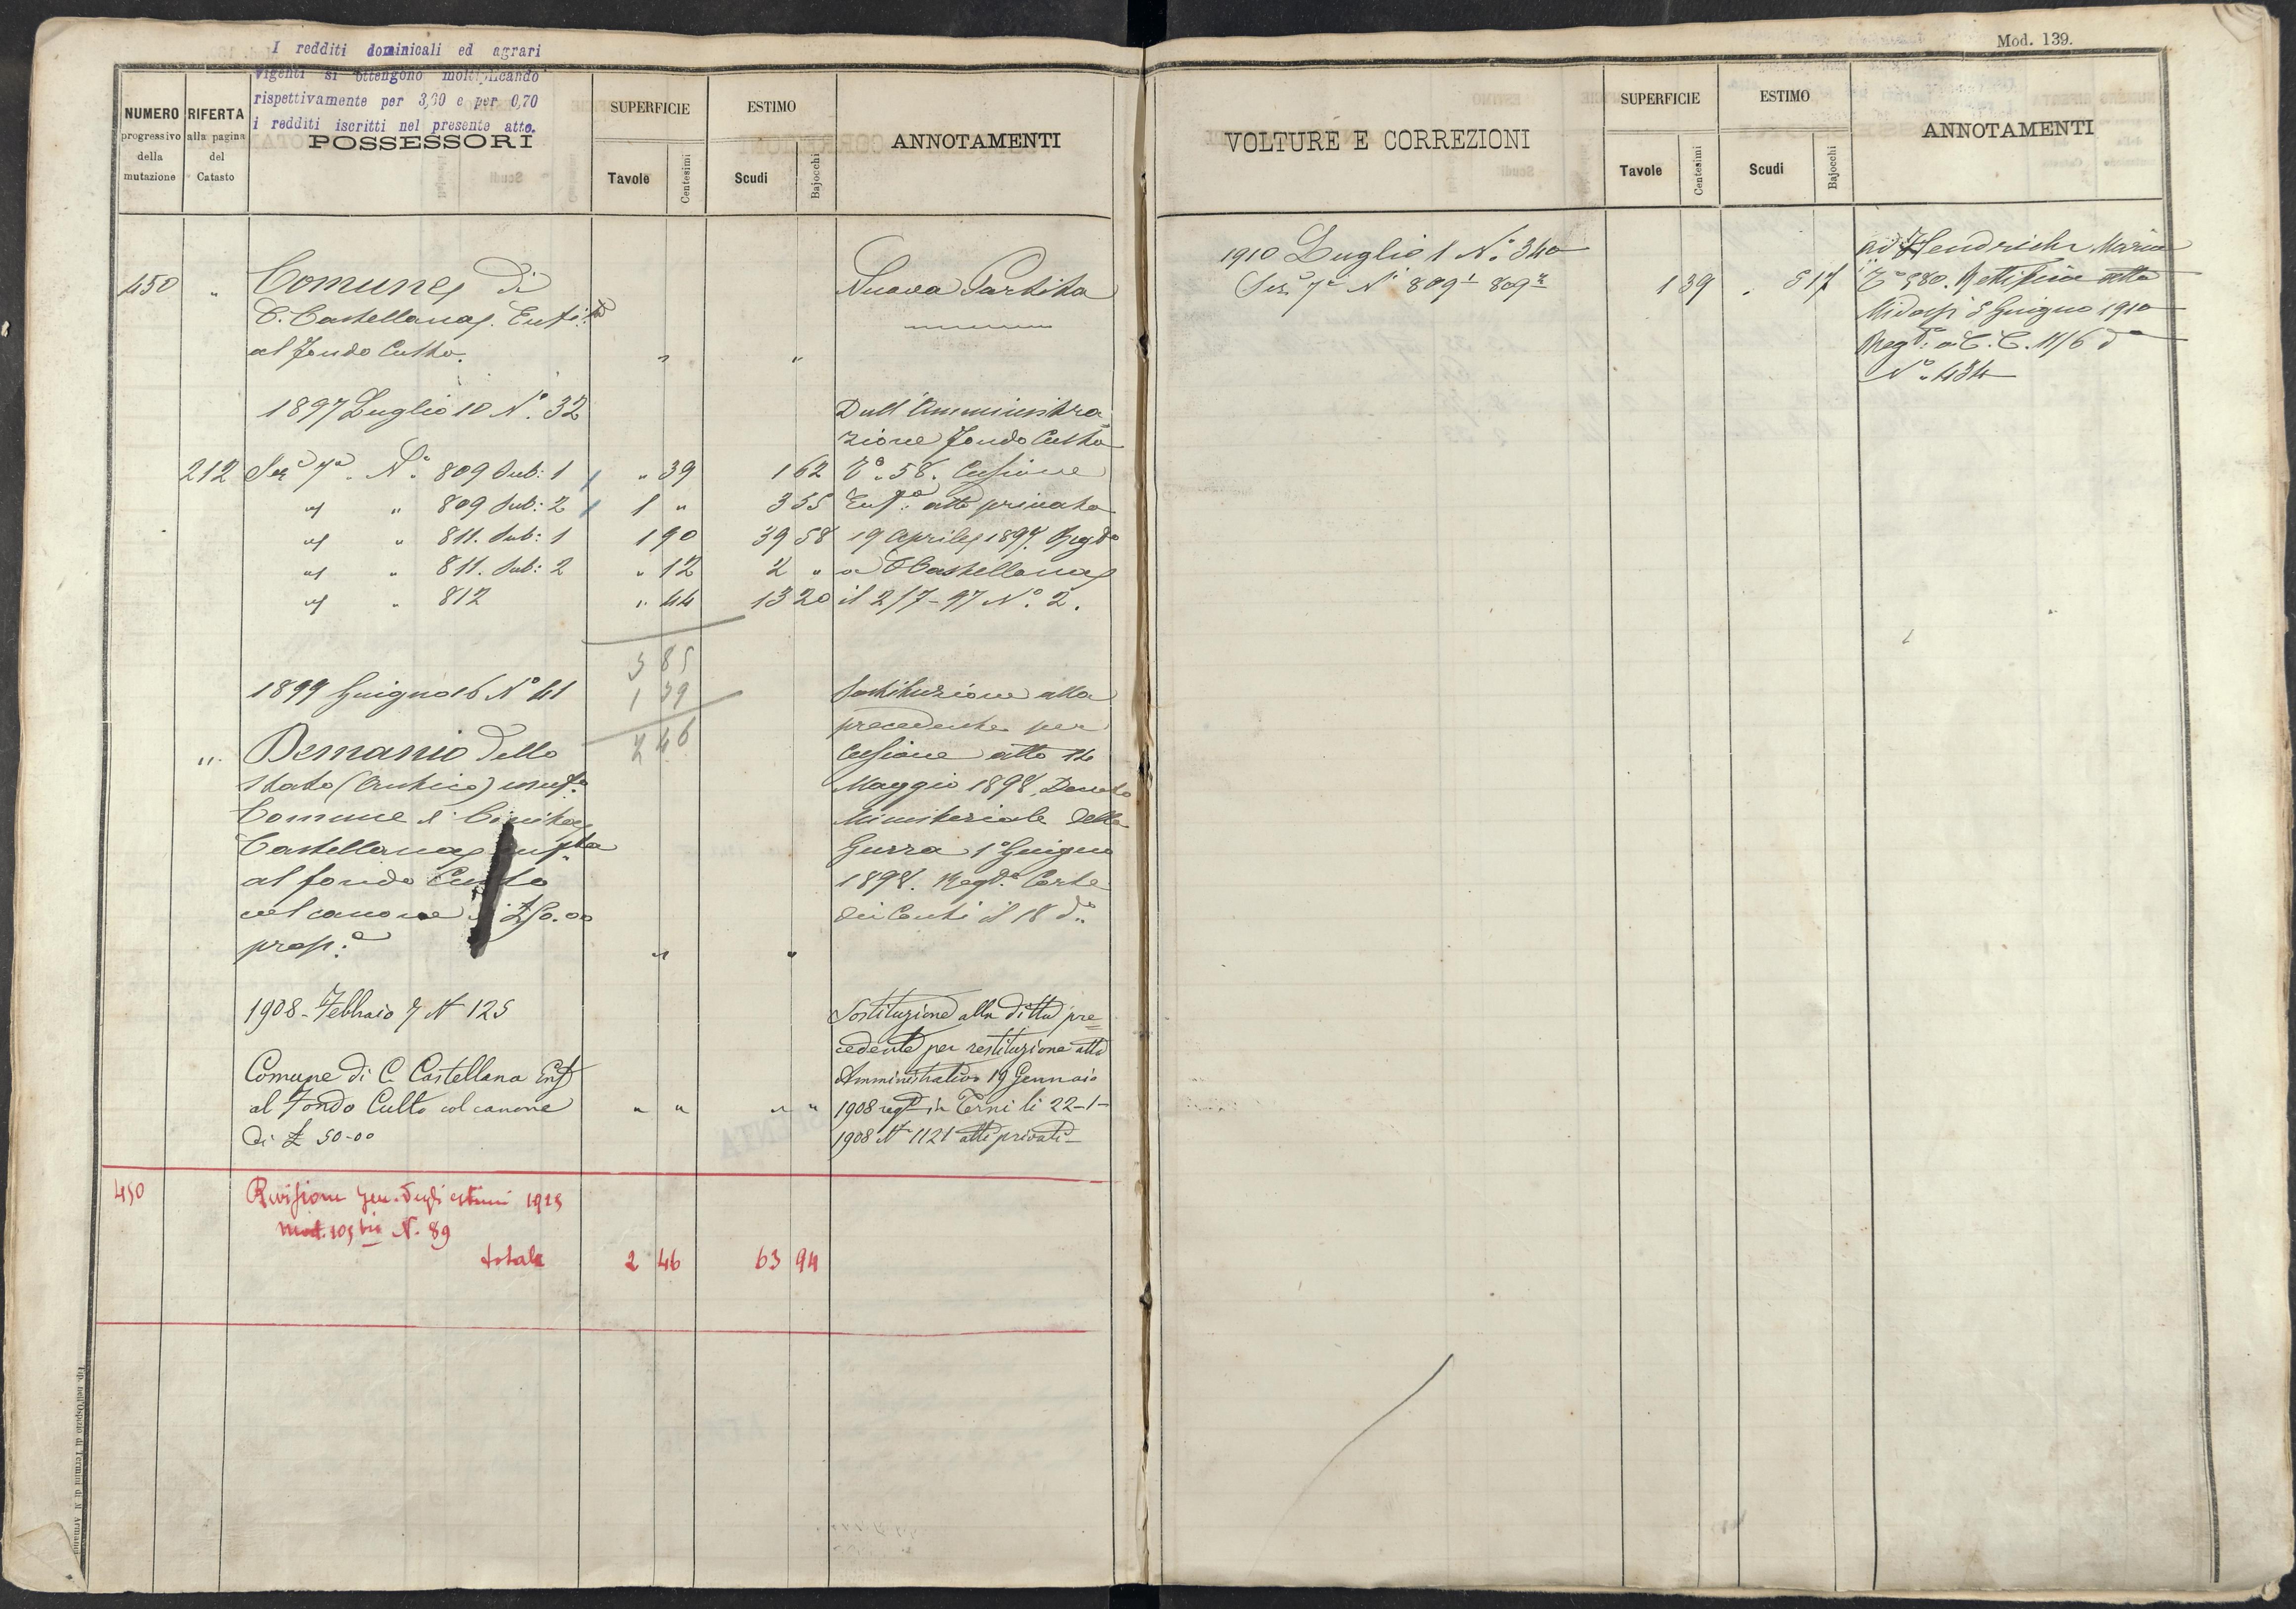 I redditi dominicali ed agrari
vigenti si ottengono moltiplicando
rispettivamente per 3,60 e per 0,70
i redditi iscritti nel presente atto.
NUMERO progressivo della mutazione
RIFERTA alla pagina del Catasto
POSSESSORI
SUPERFICIE
Tavole
Centesimi
ESTIMO
Scudi
Bajocchi
ANNOTAMENTI
450 " Comune di
C. Castellana Enfit.ta
al fondo Culto. " "
Nuova Partita
1897 Luglio 10 N.° 32
212 Sez.e 7a N.° 809 Sub: 1 " 39 1 62
" " 809 Sub: 2 1 " 3 55
" " 811. Sub: 1 1 90 39 58
" " 811. Sub: 2 " 12 2 "
" " 812 " 44 13 20
Dall'Amministra
zione fondo Culto
T.° 58. Cessione
Enf.a atto privato
19 Aprile 1897 Regto
a CCastellana
il 2/7-97 N.° 2.
3 85
1 39
2 46
1899 Giugno 16 N° 41
" Demanio dello
Stato (Antico)
Comune di Civita
Castellana enfta
al fondo Culto
col canone di £50.00
prop.e " "
Sostituzione alla
precedente per
Cessione atto 14
Maggio 1898, Decreto
Ministeriale della
Guerra 1° Giugno
1898. Regto Corte
dei Conti il 18 do
1908 - Febbraio 7 N 125
Comune di C. Castellana Enf
al Fondo Culto col canone
di £ 50-00 " " " "
Sostituzione alla ditta pre=
cedente per restituzione atto
Amministrativo 19 Gennaio
1908 regto in Terni li 22-1-
1908 N 1121 atti privati-
450 Revisione gen. degli estimi 1923
Mod. 105 bis N. 89
totale 2 46 63 94
Mod. 139.
VOLTURE E CORREZIONI
SUPERFICIE
Tavole
Centesimi
ESTIMO
Scudi
Bajocchi
ANNOTAMENTI
1910 Luglio 1 N.° 340
Sez. 7a N. 809 1 809 2 1 39 . 5 17
ad Hendrich Maria
T.° 580. Rettifica atto
Midossi 5 Giugno 1910
Regto a C. C. 11/6 do
N° 434